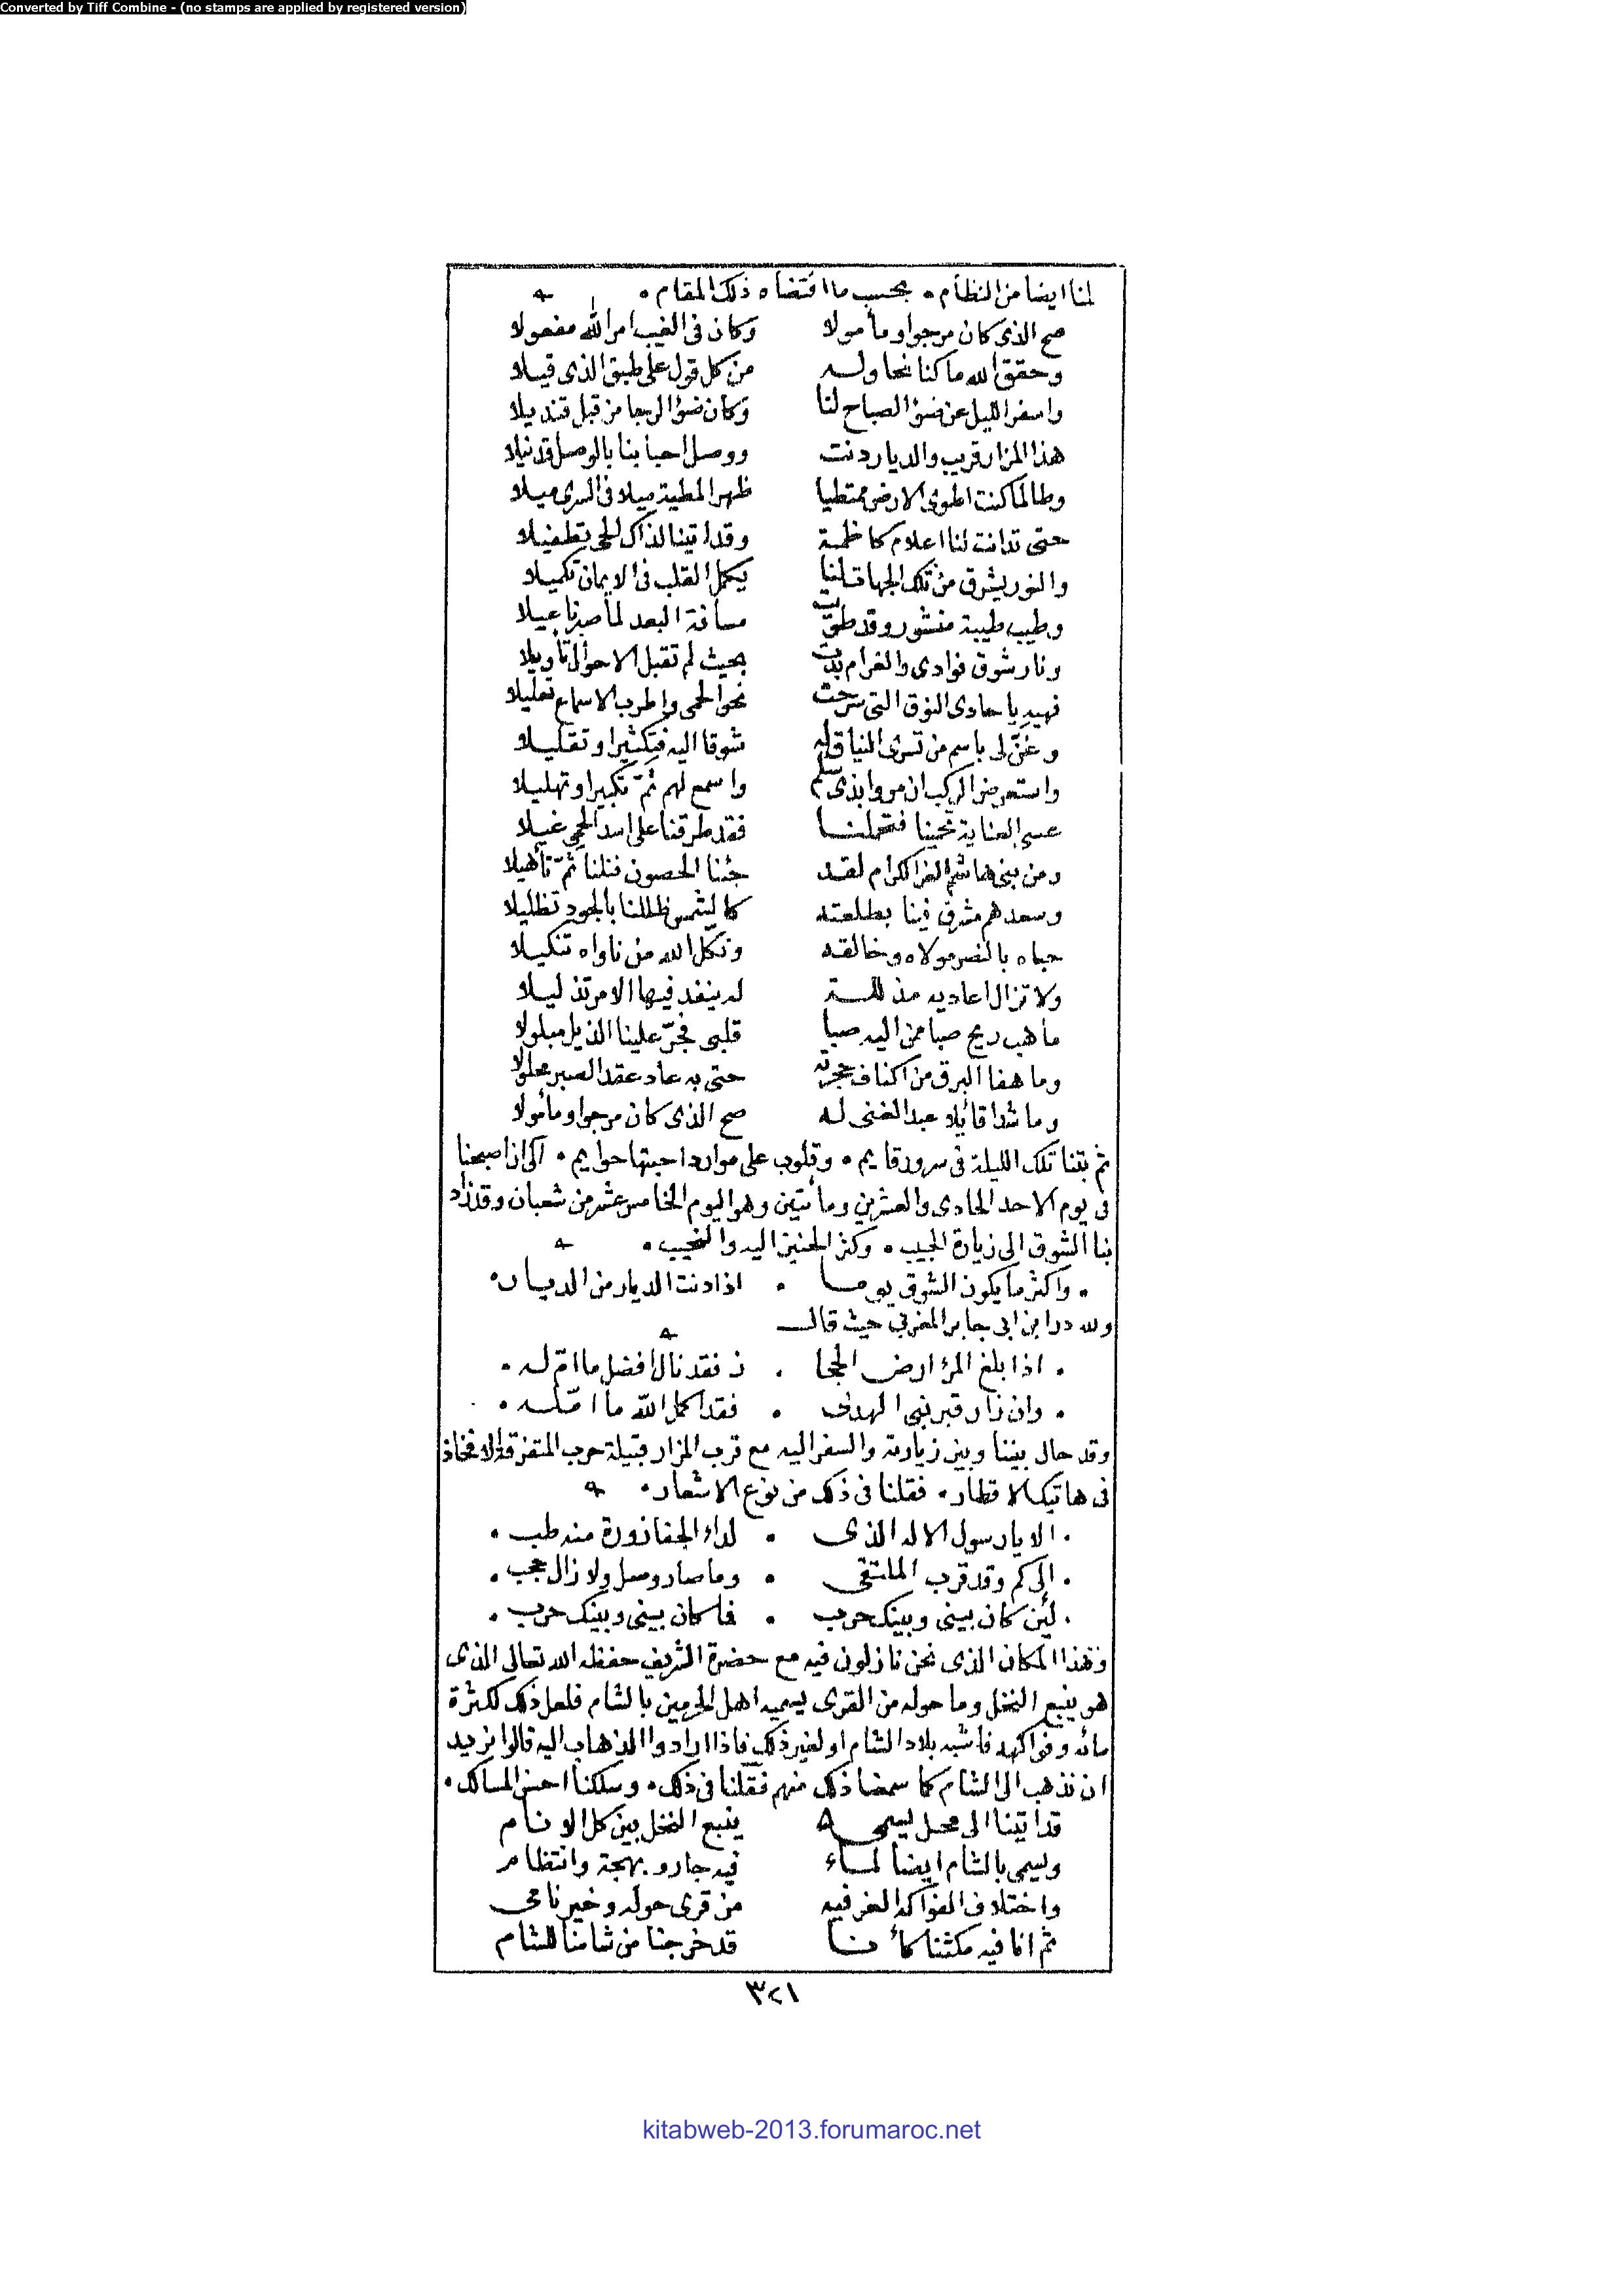 Converted by Tiff Combine - (no stamps are applied by registered version)
لنا ايضا من النظام • بحسب ما اقتضاه ذلك المقام •
صح الذى كان مرجوا ومأمولا وكان فى الغيب امر الله مفعولا
وحقق الله ما كنا نحاوله من كل قول على طبق الذى قيلا
واسفر الليل عن ضؤ الصباح لنا وكان ضؤ الرجا من قبل قنديلا
هذا المزار قريب والديار دنت ووصل احبابنا بالوصل قد نيلا
وطالما كنت اطوى الارض ممتطيا ظهر المطية ميلا فى السرى ميلا
حتى تدانت لنا اعلام كاظمة وقد اتينا لذاك الحى تطفيلا
والنور يشرق من تلك الجهات لنا يكمل القلب فى الايمان تكميلا
وطيب طيبة منشور وقد طويت مسافة البعد لما صبرنا عيلا
ونار شوق فوادى والغرام بدت بحيث لم تقبل الاحوال تأويلا
فهيد يا حادى النوق التى سرحت نحو الحمى واطرب الاسماع تعليلا
وغنّ لى باسم من تسرى النياق له شوقا اليه فتكثيرا وتقليلا
واستعرض الركب ان مروا بذى سلم واسمع لهم ثمّ تكبيرا وتهليلا
عسى العناية تحيينا فتحملنا فقد طرقنا على اسد الحمى غيلا
ومن بنى هاشم الغر الكرام لقد جئنا الحصون فنلنا ثمّ تأهيلا
وسعدهم مشرق فينا بطلعته كالشمس ظللنا بالجود تظليلا
حباه بالنصر مولاه وخالقه ونكّل الله من ناواه تنكيلا
ولا تزال اعاديه مذللة له ينفد فيها الامر تذليلا
ما هب ريح صبا من اليه صبا قلبى فجرّ علينا الذيل مبلولا
وما هفا البرق من اكناف حجرته حتى به عاد عقد الصبر محلولا
وما شدا قائلا عبد الغنى له صح الذى كان مرجوا ومأمولا
ثم بتنا تلك الليلة فى سرور قايم • وقلوب على موارد احبتها حوايم • الى ان اصبحنا
فى يوم الاحد الحادى والعشرين ومائتين وهو اليوم الخامس عشر من شعبان وقد زاد
بنا الشوق الى زيارة الحبيب • وكثر الحنين اليه والنحيب •
• واكثر ما يكون الشوق يوما • اذا دنت الديار من الديار •
ولله در ابن ابى جابر المغربى حيث قال
• اذا بلغ المرؤ ارض الحجا • ز فقد نال افضل ما امّ له •
• وان زار قبر نبى الهدى • فقد اكمل الله ما امّله •
وقد حال بيننا وبين زيارته والسفر اليه مع قرب المزار قبيلة حرب المتفرقة الافخاذ
فى هاتيك الاقطار • فقلنا فى ذلك من نوع الاشعار •
• الا يا رسول الاله الذى • لداء الجفا زورة منه طب •
• الى كم وقد قرب الملتقى • وما صار وصل ولا زال حجب •
• لئن كان بينى وبينك حرب • فما كان بينى وبينك حرب •
وهذا المكان الذى نحن نازلون فيه مع حضرة الشريف حفظه الله تعالى الذى
هو ينبع النخل وما حوله من القرى يسميه اهل الحرمين بالشام فلعل ذلك لكثرة
مائه وفواكهه فاشبه بلاد الشام او لغير ذلك فاذا ارادوا الذهاب اليه قالوا نريد
ان نذهب الى الشام كما سمعنا ذلك منهم فقلنا فى ذلك • وسلكنا احسن المسالك •
قد اتينا الى محل يسمى ينبع النخل بين كل الانام
ويسمى بالشام ايضا لماء فيه جار وبهجة وانتظام
واختلاف الفواكه الغر فيه من قرى حوله وخير نامى
ثم انا فيه مكثنا كأنا قد خرجنا من شامنا للشام
٣٢١
kitabweb-2013.forumaroc.net